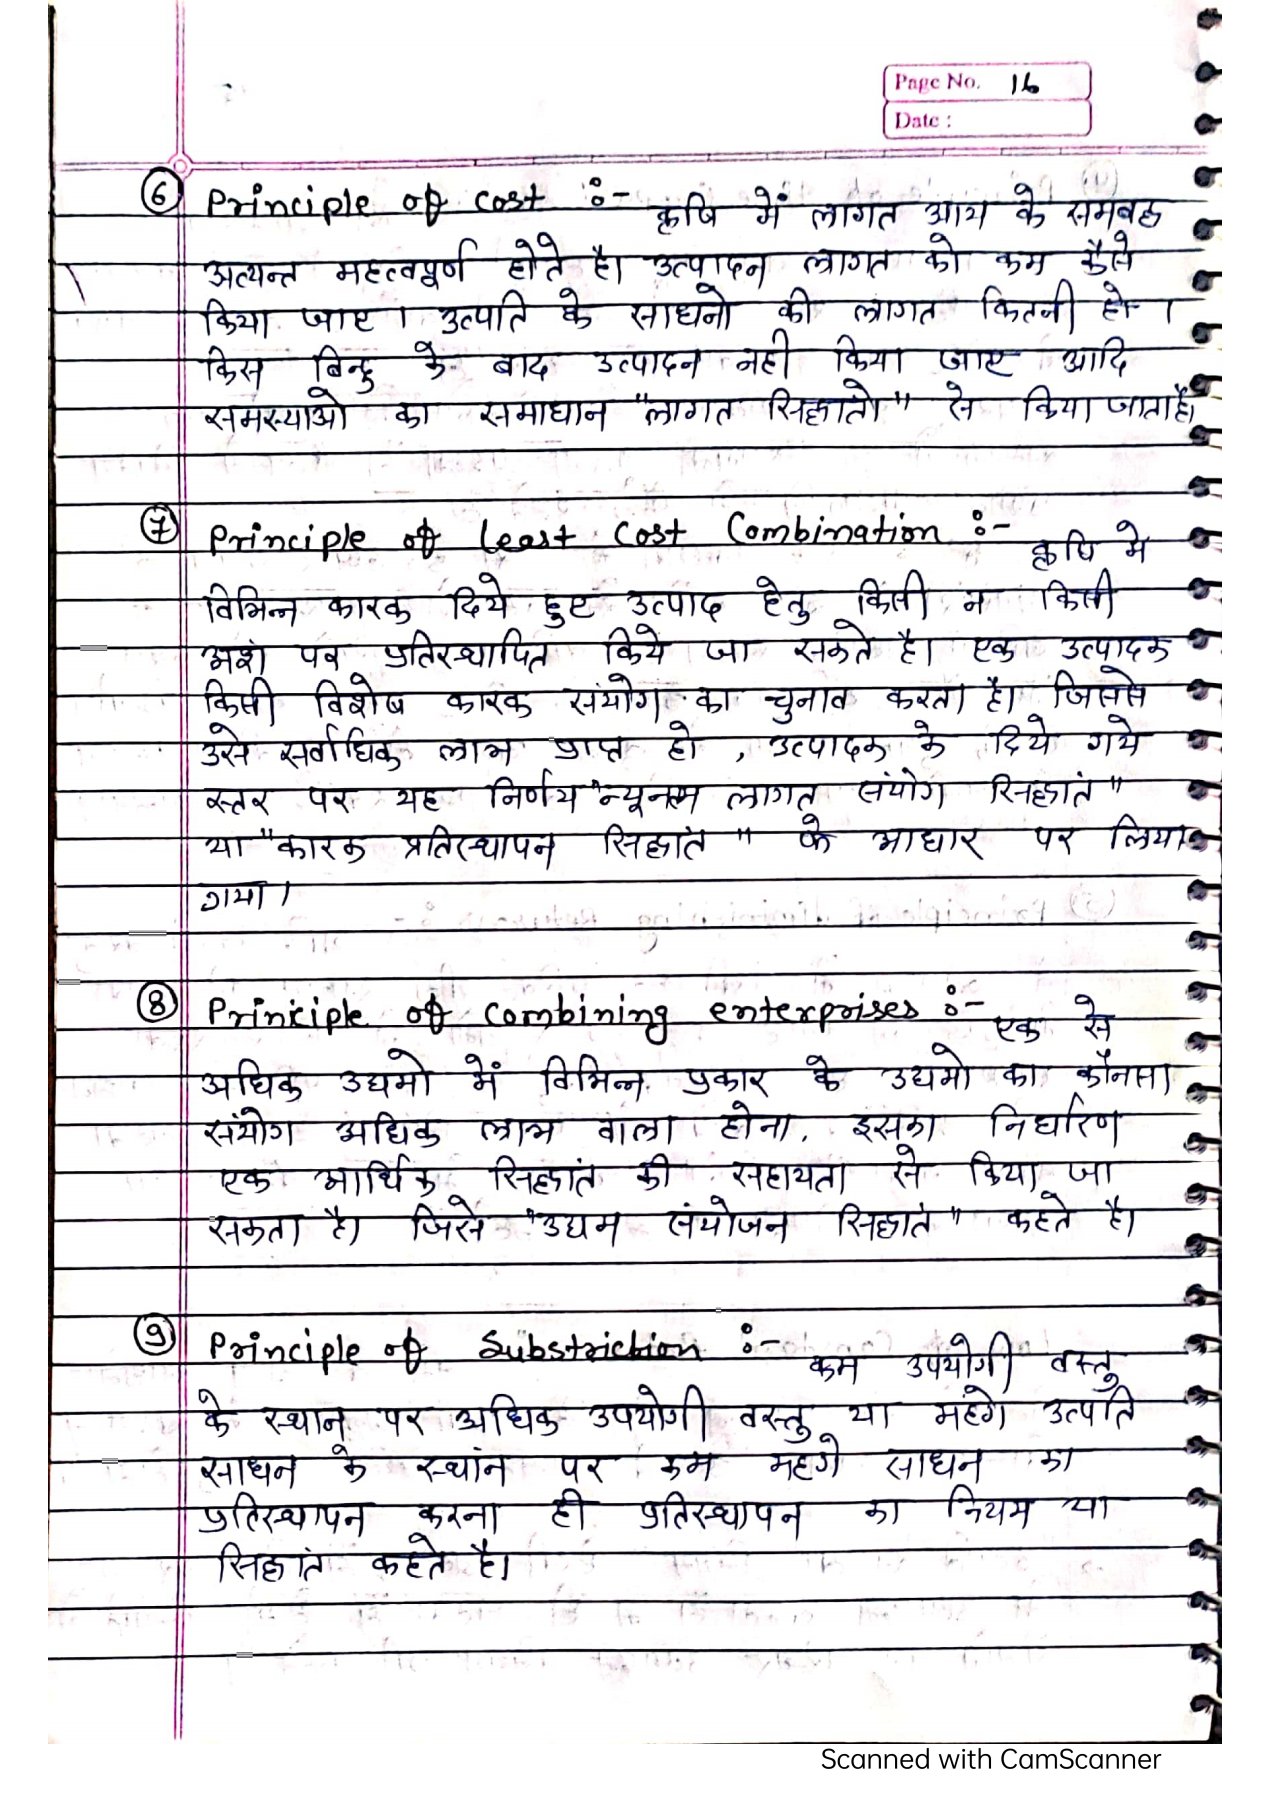 Page No. 16
Date :
6 Principle of cost :- कृषि में लागत आय के समबद्ध
अत्यन्त महत्वपूर्ण होते है। उत्पादन लागत को कम कैसे
किया जाए । उत्पति के साधनो की लागत कितनी हो ।
किस बिन्दु के बाद उत्पादन नही किया जाए आदि
समस्याओ का समाधान "लागत सिद्धातो" से किया जाता है।
7 Principle of Least Cost Combination :- कृषि मे
विभिन्न कारक दिये हुए उत्पाद हेतु किसी न किसी
अशं पर प्रतिस्थापित किये जा सकते है। एक उत्पादक
किसी विशेष कारक संयोग का चुनाव करता है। जिससे
उसे सर्वाधिक लाभ प्राप्त हो , उत्पादक के दिये गये
स्तर पर यह निर्णय "न्यूनतम लागत संयोग सिद्धातं"
या "कारक प्रतिस्थापन सिद्धातं" के आधार पर लिया
गया ।
8 Principle of Combining enterprises :- एक से
अधिक उद्यमो में विभिन्न प्रकार के उद्यमो का कौनसा
संयोग अधिक लाभ वाला होना, इसका निर्धारण
एक आर्थिक सिद्धातं की सहायता से किया जा
सकता है। जिसे "उद्यम संयोजन सिद्धातं" कहते है।
9 Principle of Substriction :- कम उपयोगी वस्तु
के स्थान पर अधिक उपयोगी वस्तु या महंगे उत्पति
साधन के स्थांन पर कम महगे साधन का
प्रतिस्थापन करना ही प्रतिस्थापन का नियम या
सिद्धातं कहते है।
Scanned with CamScanner